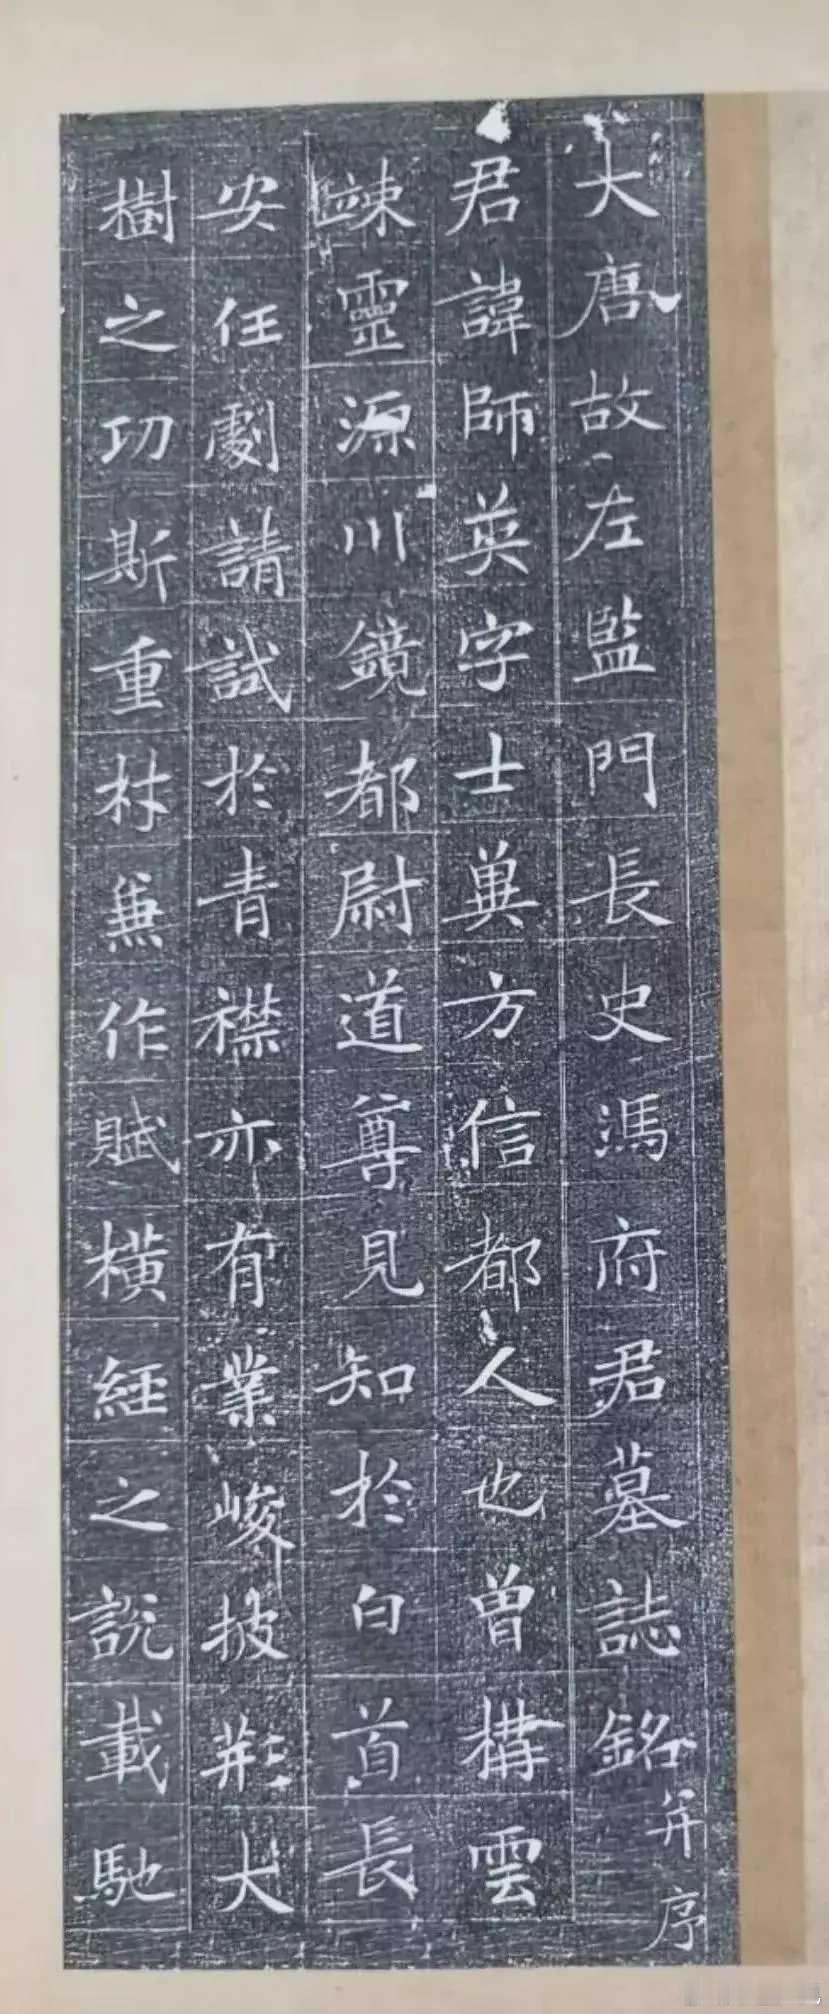 大唐故左監門長史馮府君墓誌銘并序
君諱師英字士兾方信都人也曾構雲
竦靈源川鏡都尉道尊見知於白首長
安任劇請試於青襟亦有業峻披荊大
樹之功斯重材兼作賦橫經之說載馳